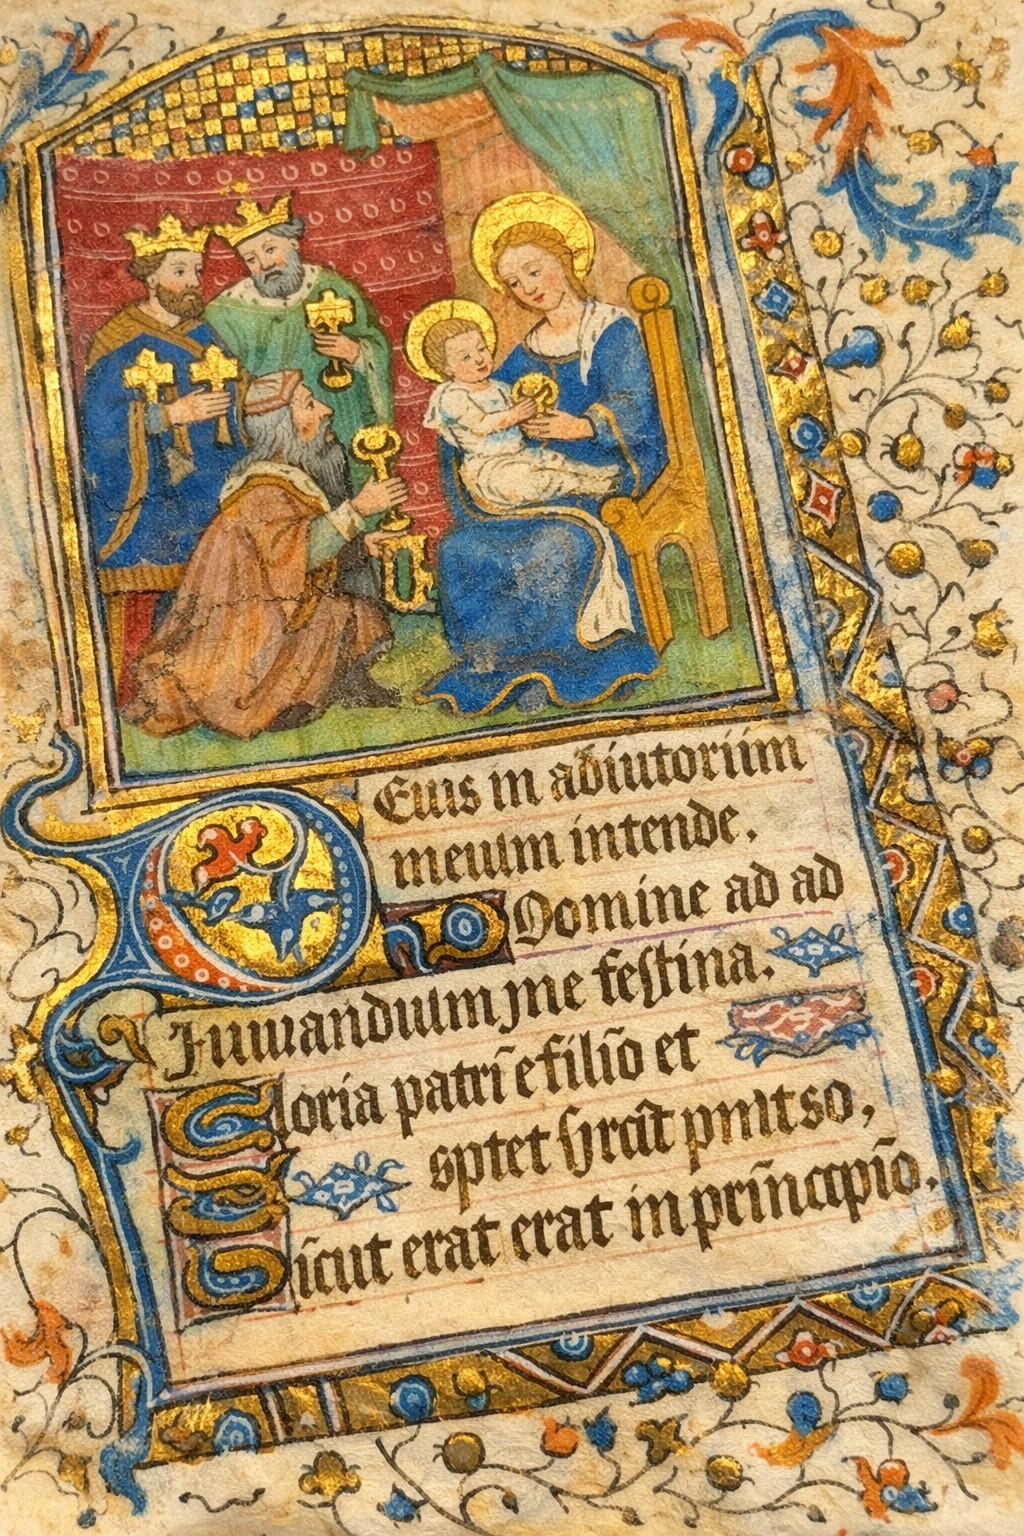 Euus in adiutoriim
meuum intende.
Domine ad ad
Iuuuanduum me festina.
Gloria patrī e filiō et
sptet
Sicut erat erat in prīncipiō.